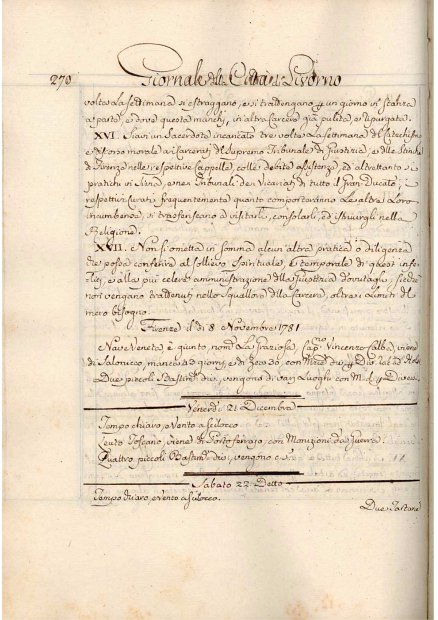 270 Giornale della Città di Livorno
volta la settimana si estraggano, e si trattengano p. un giorno in stanza
aparte, e dove questa manchi, in altra Carcere già pulita, e spurgata.
XVI. Siavi un Sacerdote incaricato tre volte la settimana del Catechismo
e Discorso morale ai Carcerati del Supremo Tribunale di Giustizia, e delle Stinche
di Firenze nelle respettive Cappelle, colle debite assistenze, ed altrettanto si
pratichi in Siena, e nei Tribunali dei Vicariati di tutto il Gran-Ducato; i
respettivi Curati frequentemente quanto comporteranno le altre loro
incumbenze, si trasferiscano a visitarli, consolarli, ed istruirgli nella
Religione.
XVII. Non si ometta in somma alcun'altra pratica o diligenza
che possa conferire al sollievo Spirituale, e temporale di questi infe-
lici, e alla più celere amministrazione della Giustizia dovutagli, sicchè
non vengano trattenuti nello squallore della Carcere, oltre i limiti del
mero bisogno.
Firenze il dì 8 Novembre 1781
Nave Veneta è giunta, nom. La Graziosa, Cap.no Vincenzo Calba, viene
di Salonicco, manca 43 giorni, e di Zea 30, con
Due piccoli Bastim. vengono di varj Luoghi con M. e Diverse.
Venerdì 21 Dicembre
Tempo chiaro, e Vento a Scilocco
Leuto Toscano, viene di Portoferrajo, con Munizioni da Guerra.
Quattro piccoli Bastim. vengono
Sabato 22 Detto
Tempo chiaro, e vento a Scilocco.
Due Tartane